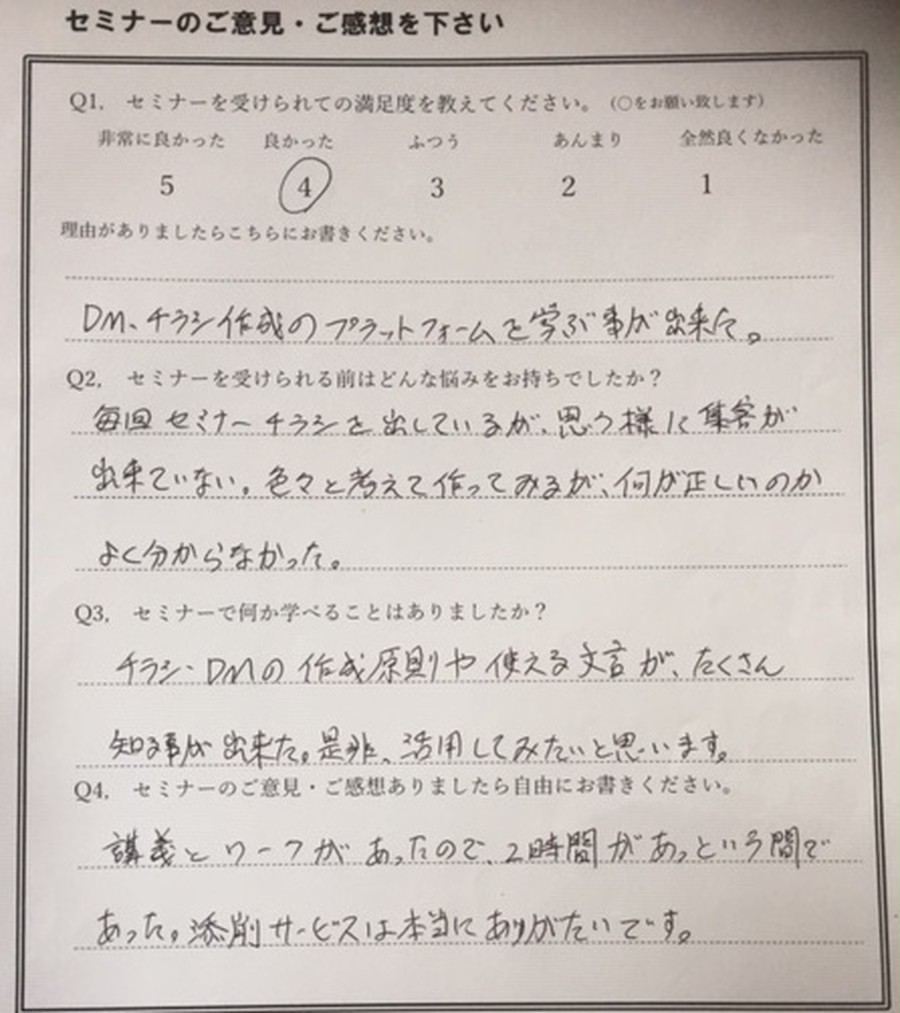 セミナーのご意見・ご感想を下さい
Q1, セミナーを受けられての満足度を教えてください。(○をお願い致します)
非常に良かった 良かった ふつう あんまり 全然良くなかった
5 4 3 2 1
理由がありましたらこちらにお書きください。
DM、チラシ作成のプラットフォームを学ぶ事が出来た。
Q2, セミナーを受けられる前はどんな悩みをお持ちでしたか?
毎回セミナーチラシを出しているが、思う様に集客が
出来ていない。色々と考えて作ってみるが、何が正しいのか
よく分からなかった。
Q3, セミナーで何か学べることはありましたか?
チラシ・DMの作成原則や使える文言が、たくさん
知る事が出来た。是非、活用してみたいと思います。
Q4, セミナーのご意見・ご感想ありましたら自由にお書きください。
講義とワークがあったので、2時間があっという間で
あった。添削サービスは本当にありがたいです。